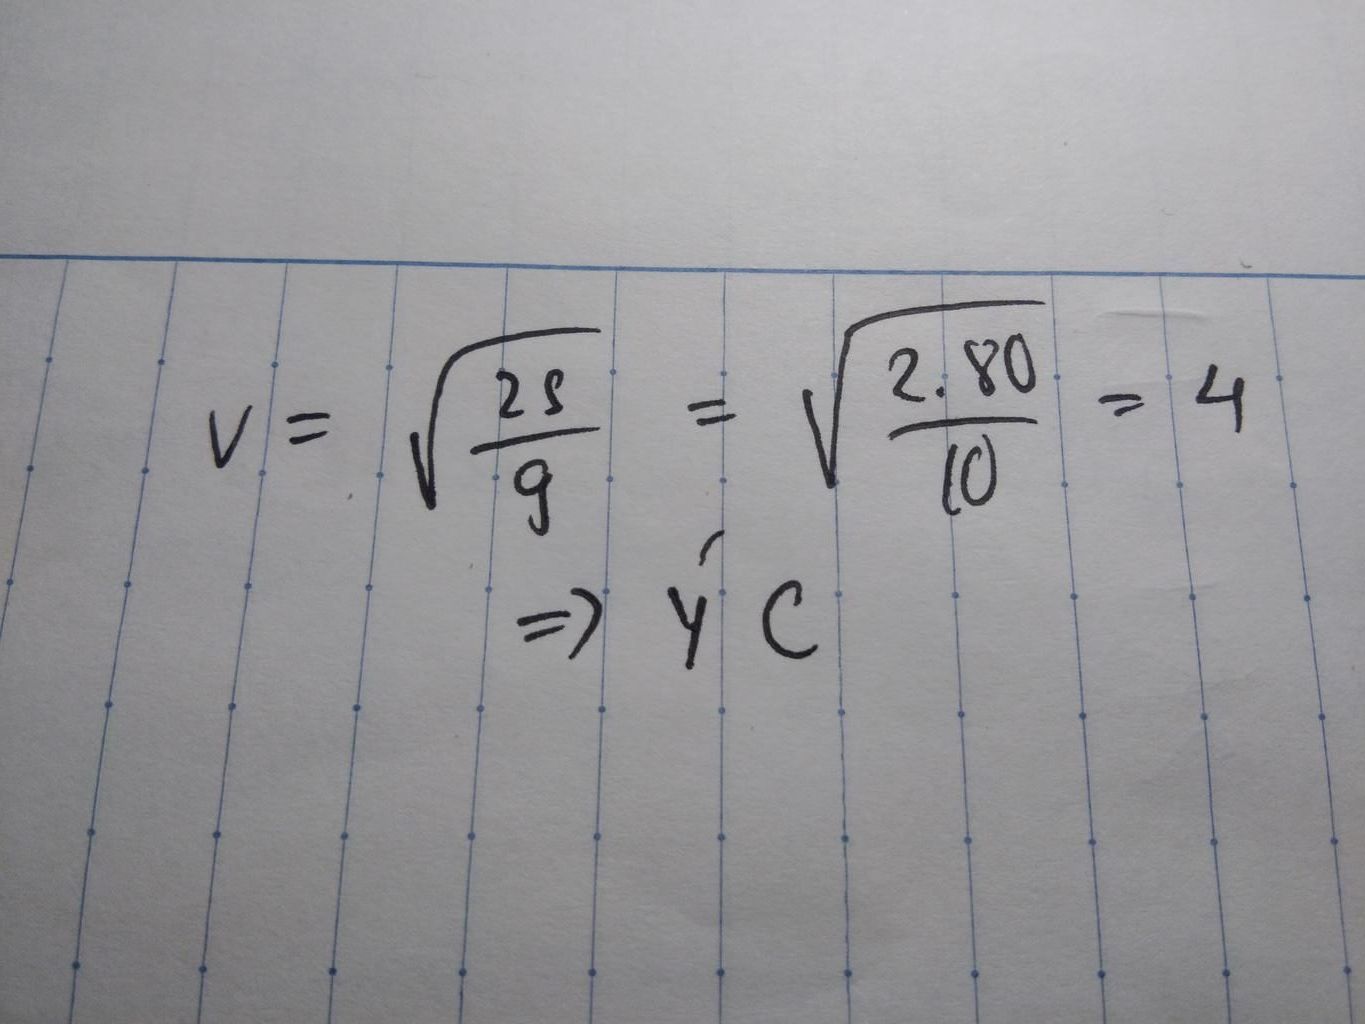 v = √(2s/g) = √(2.80/10) = 4
=> Ý C